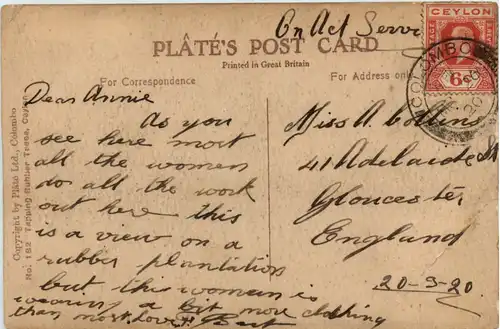 On Act Serv
PLÂTÉ'S POST CARD
Printed in Great Britain
For Correspondence
For Address only
CEYLON
POSTAGE
6c
COLOMBO
Dear Annie
As you
see here most
all the women
do all the work
out here this
is a view on a
rubber plantation
but this woman is
wearing a bit more clothing
than most. Love Bert
Miss A. Collins
41 Adelaide St
Gloucester
England
20-9-20
Copyright by Plâté Ltd., Colombo
No. 182 Tapping Rubber Trees, Ceylon